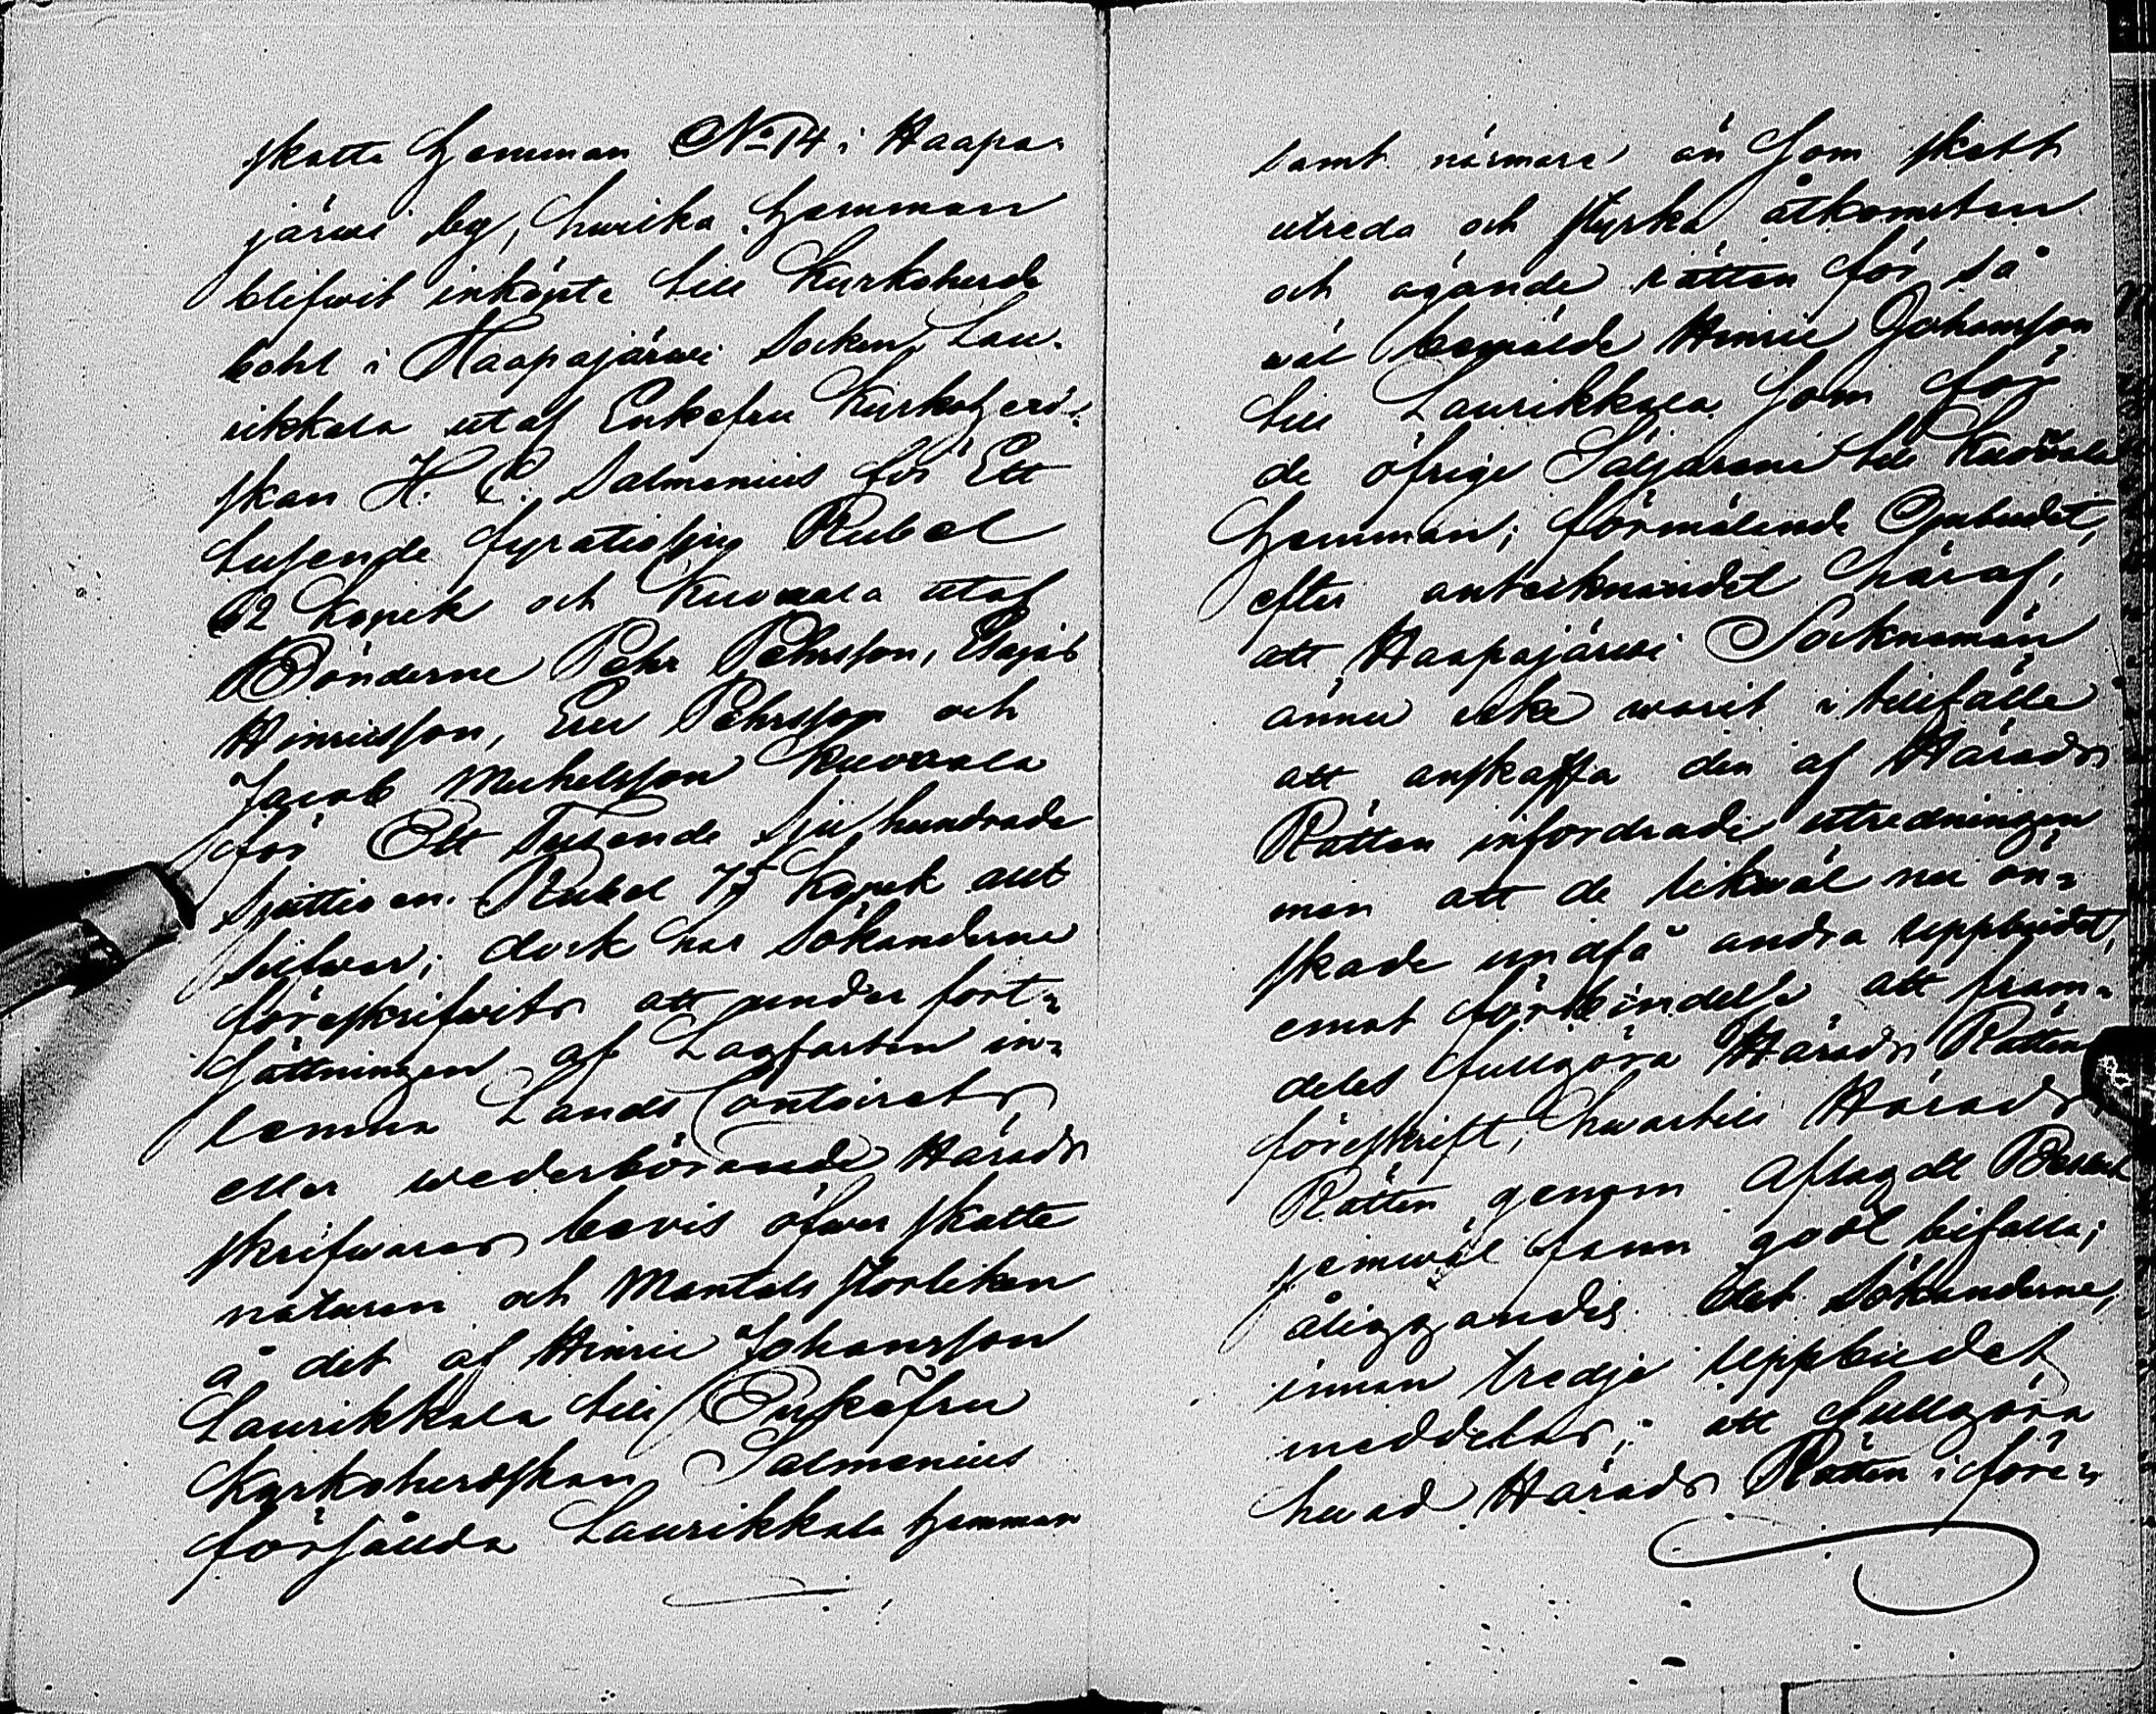 skatte hemman No 14 i Haapa-
järwi by, hwilka hemman
blifwit inköpte till Kyrkoherde
bohl i Haapajärwi Socken, Lau-
rikkala utaf Enkefru Kyrkoherd-
skan H. C. Salmenius för Ett
tusende fyratiosju Rubel
62 Kopek och Kuorala utaf
Bönderne Pehr Pehrsson, Esajas
Hinricsson, Eric Pehrsson och
Jacob Michelsson Kuorala
för Ett Tusende Sju hundrade
Sjuttio en Rubel 75 Kopek allt
Silfwer; dock har Sökanderne
föreskrifwits att under fort-
sättningen af Lagfarten in-
lemna Lands Contoirets
eller wederbörande Härads
skrifwares bevis öfwer skatte
naturen och Mantals storleken
å det af Hinric Johansson
Laurikkala till Enkefru
Kyrkoherdskan Salmenius
försållda Laurikkala hemman
samt närmare än som skett
utreda och styrka åtkomsten
och ägande rätten för så
wäl bemälde Hinric Johansson
till Laurikkala som för
de öfrige Säljarene till Kuorala
hemman; förmälande Ombudet,
efter antecknandet häraf,
att Haapajärwi Sockneman
ännu icke warit i tillfälle
att anskaffa den af Härads
Rätten infordrade utredningen
men att de likwäl nu ön-
skade undfå andra uppbudet,
emot förbindelse att fram-
deles fullgöra Härads Rättens
föreskrift, hwartill Härads
Rätten genom afsagdt Beslut
jemwäl fann godt bifalla;
åliggandes det Sökanderne,
innan tredje uppbudet
meddelas, att fullgöra
hwad Härads Rätten i före-